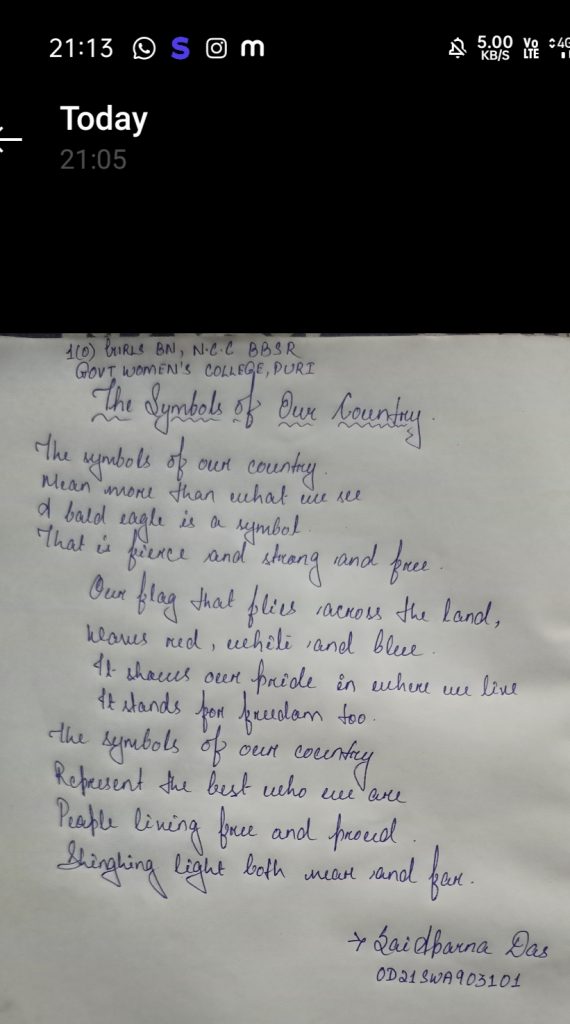 21:13 S m 5.00 KB/S Vo LTE 4G
Today
21:05
1(O) GIRLS BN, N.C.C BBSR
GOVT WOMEN'S COLLEGE, PURI
The Symbols of Our Country.
The symbols of our country.
Mean more than what we see
A bald eagle is a symbol.
That is fierce and strong and free.
Our flag that flies across the land,
Waves red, white and blue.
It shows our pride in where we live
It stands for freedom too.
The symbols of our country
Represent the best who we are
People living free and proud.
Shinghing light both near and far.
→ Sai Aparna Das
OD21SWA903101